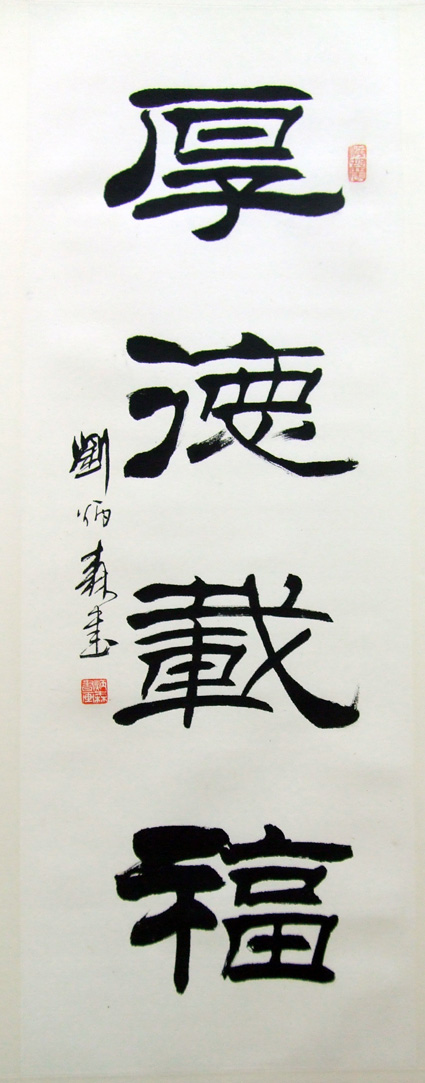 厚德載福
劉炳森書